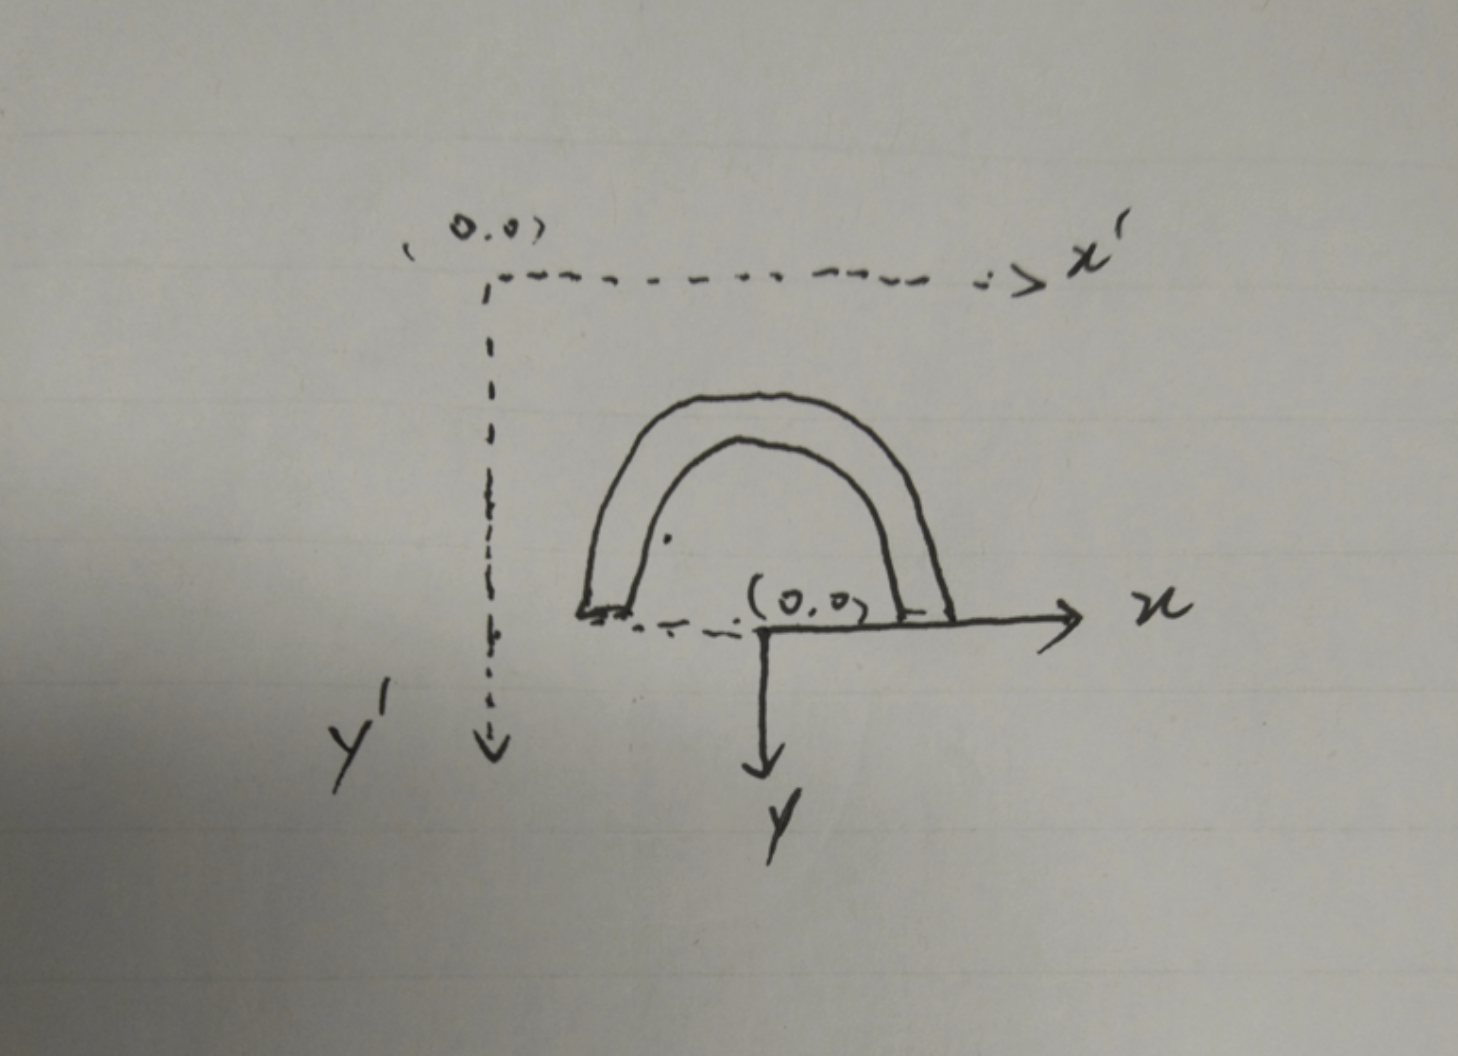 (0.0)
x'
(0.0)
x
y'
y